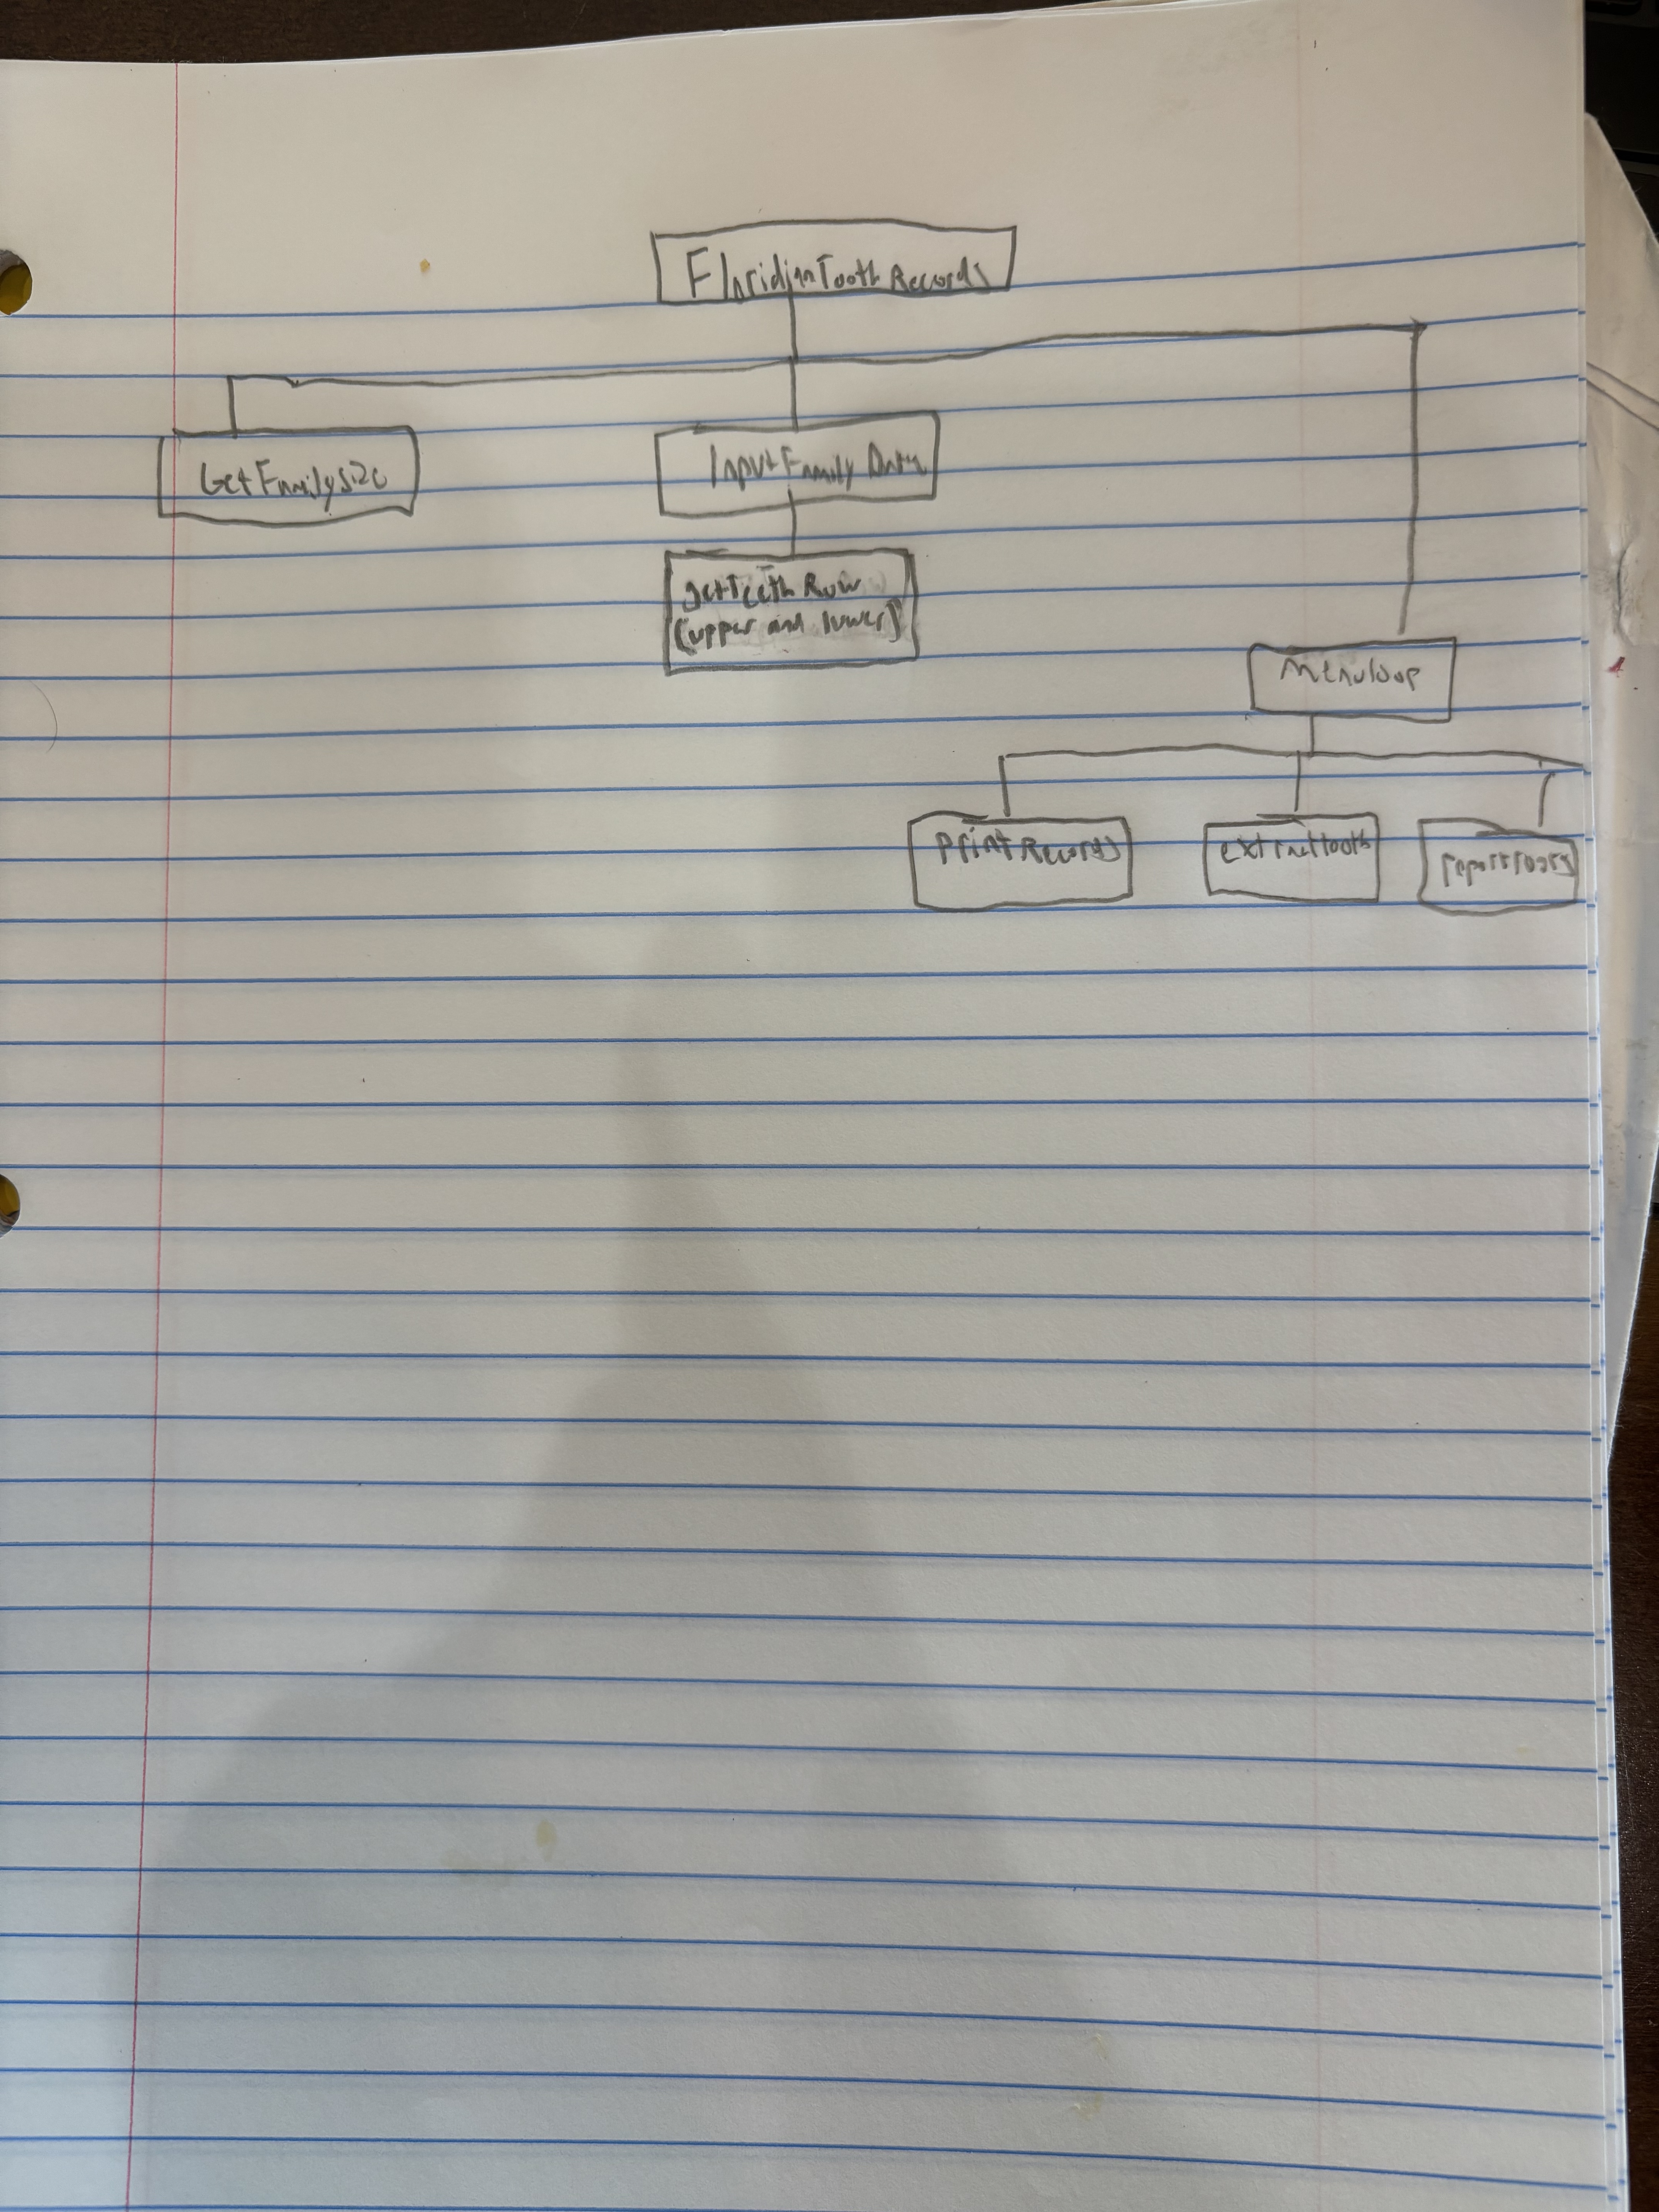 FloridianTooth Records
GetFamilySize
InputFamily Data
getTeeth Row
(upper and lower)
Menuloop
printRecords
extracttooth
reportroots